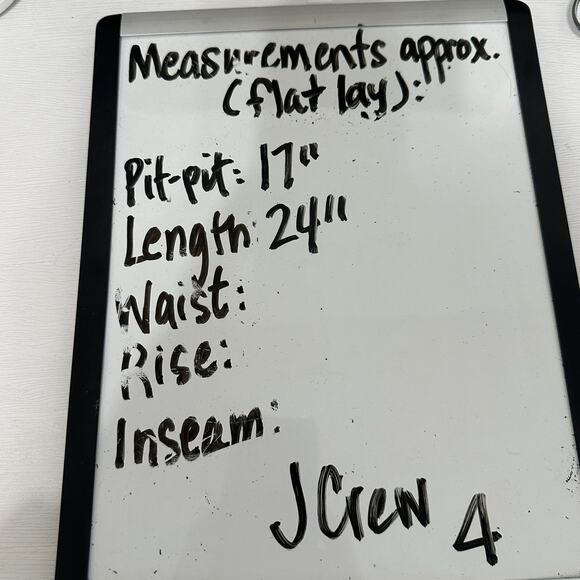 Measurements approx.
(flat lay):
Pit-pit: 17"
Length: 24"
Waist:
Rise:
Inseam:
J Crew 4